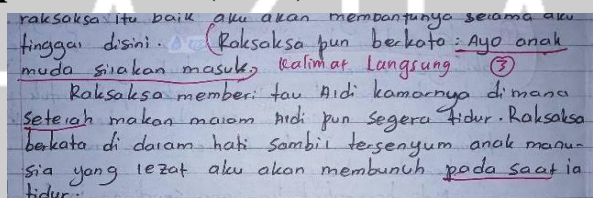 raksaksa itu baik aku akan membantunya selama aku
tinggal disini. (Raksaksa pun berkata : Ayo anak
muda silakan masuk, kalimat Langsung ③
Raksaksa memberi tau Aldi kamarnya dimana
setelah makan malam Aldi pun segera tidur. Raksaksa
berkata di dalam hati sambil tersenyum anak manu-
sia yang lezat aku akan membunuh pada saat ia
tidur.